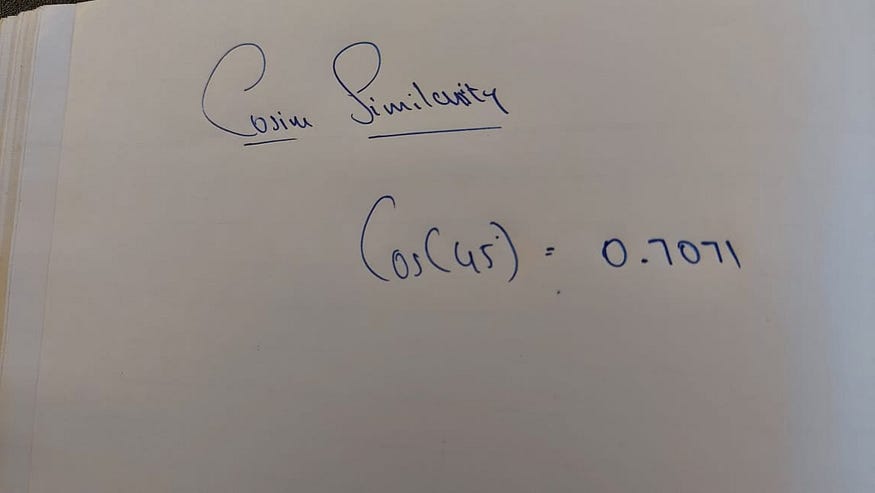 Cosine Similarity
Cos(45) = 0.7071